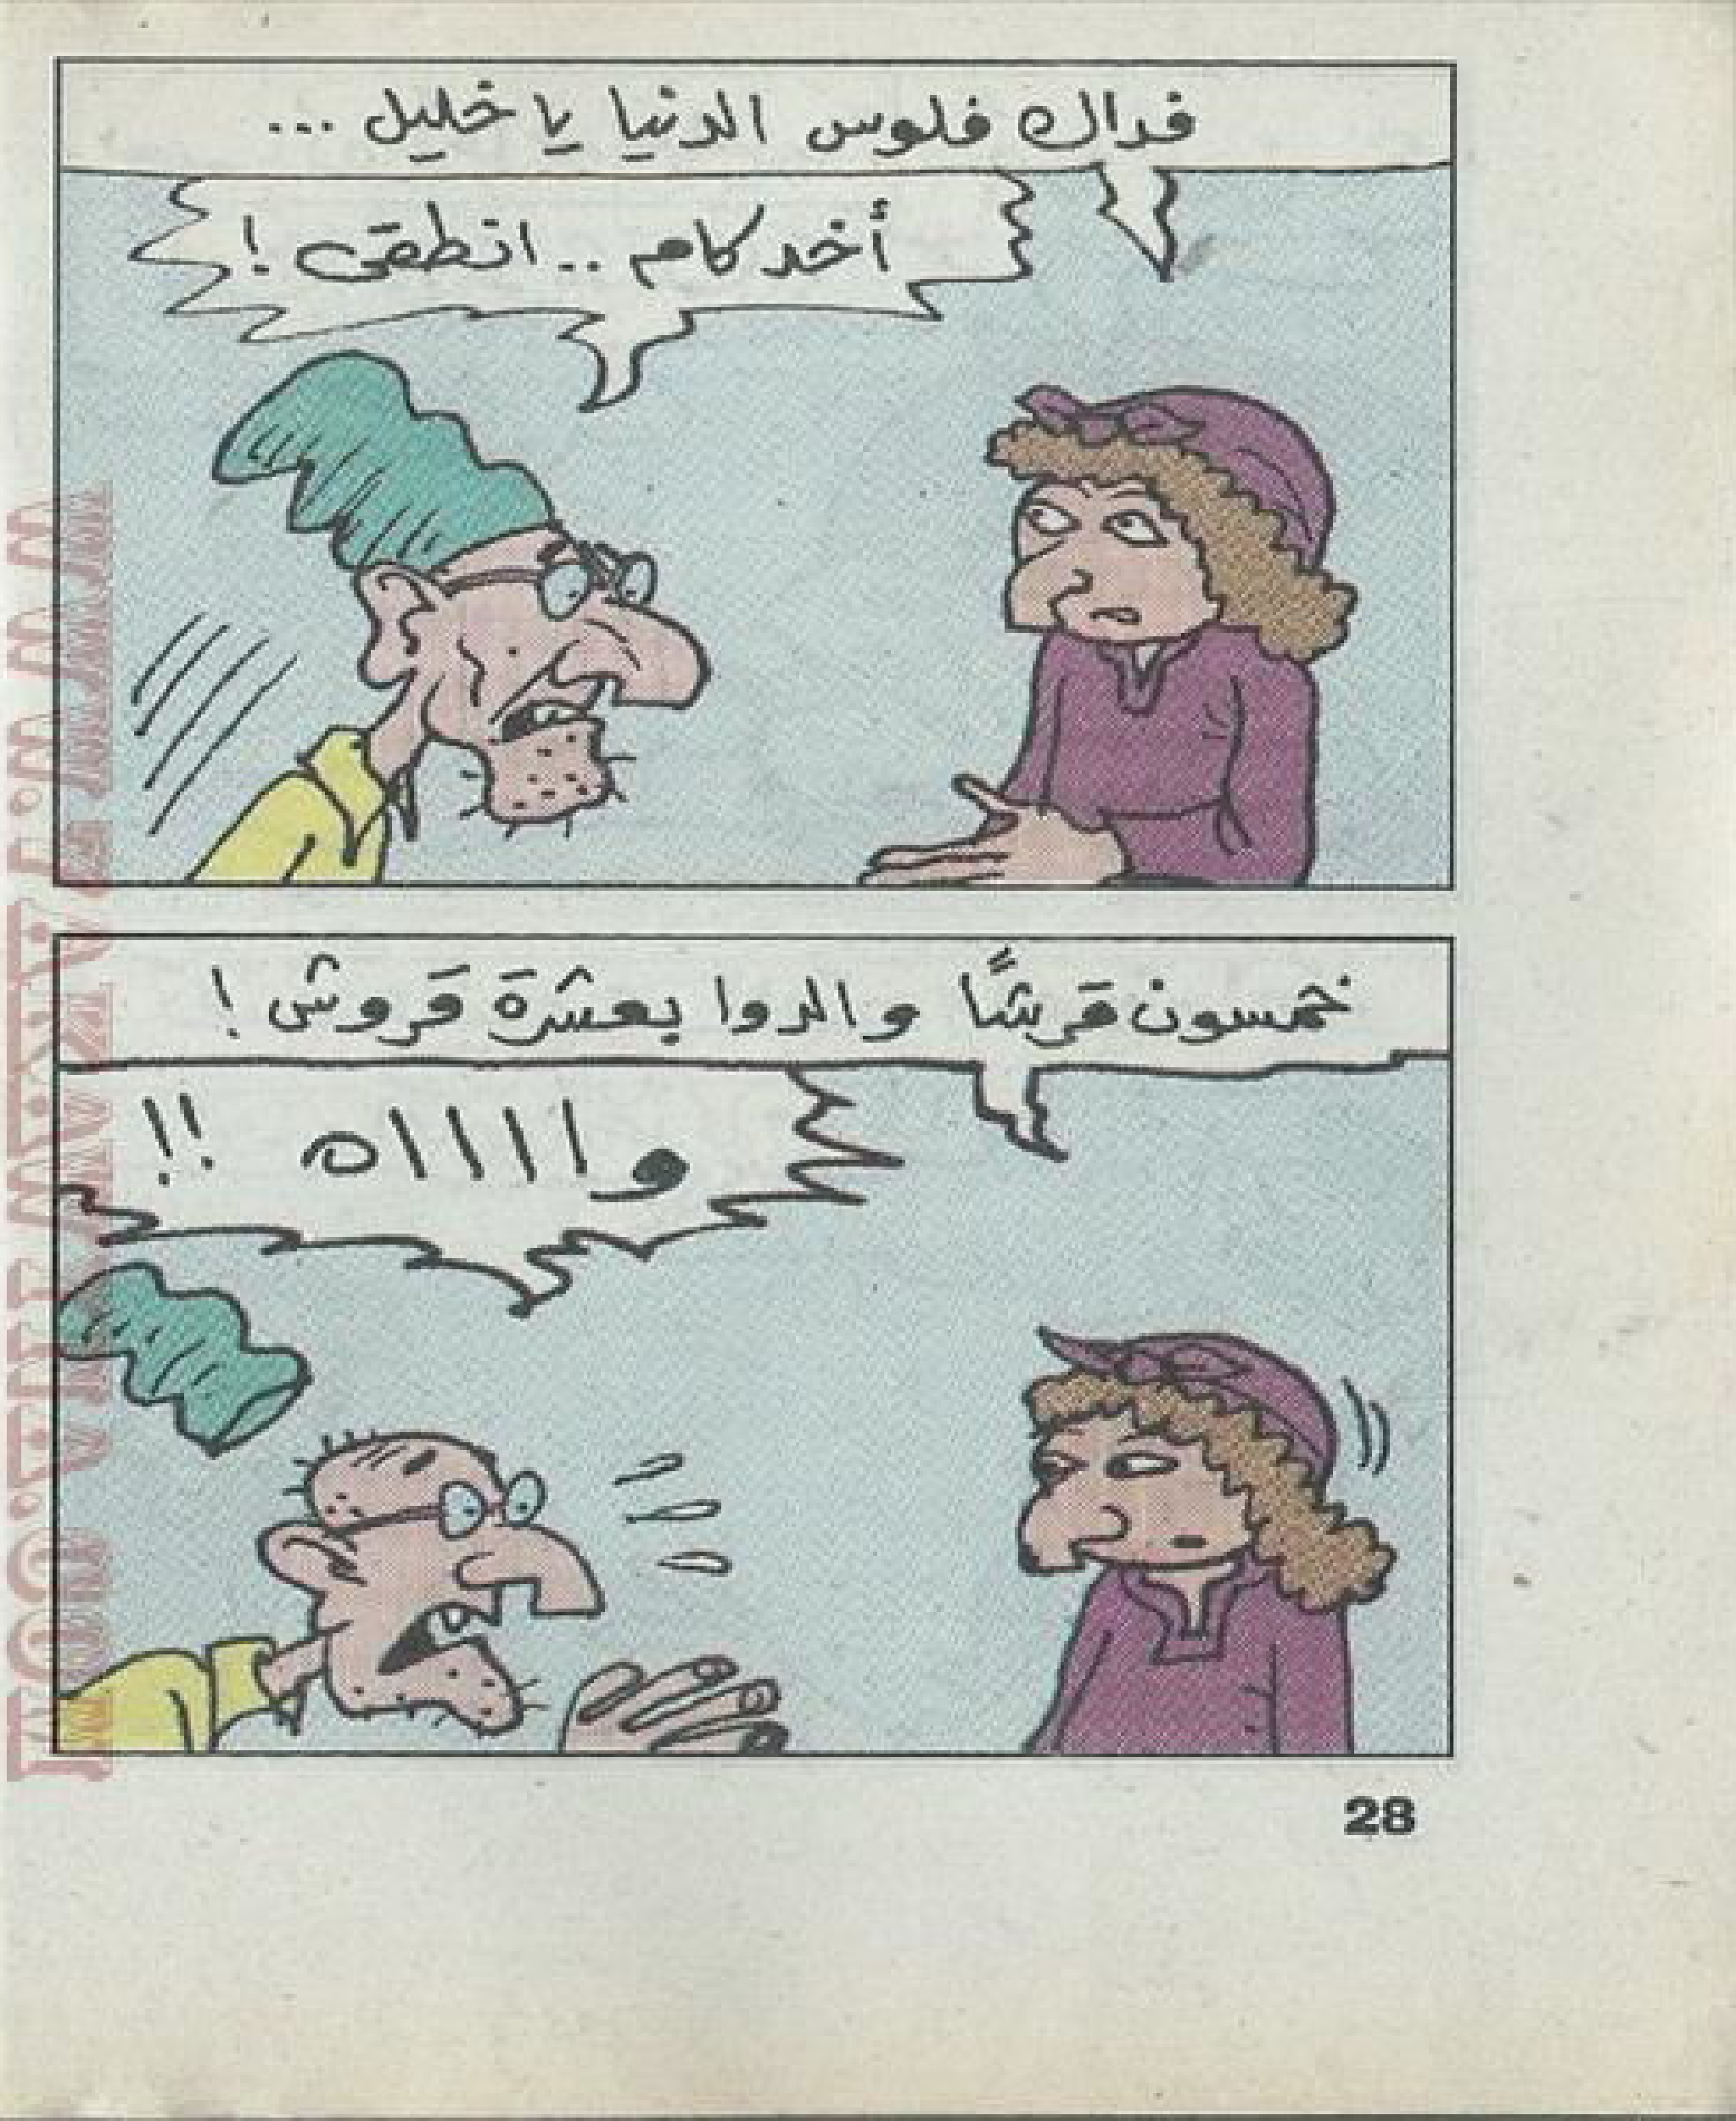 فداك فلوس الدنيا يا خليل ...
أخد كام .. انطقى !
خمسون قرشًا والدوا بعشرة قروش !
واااااه !!
28